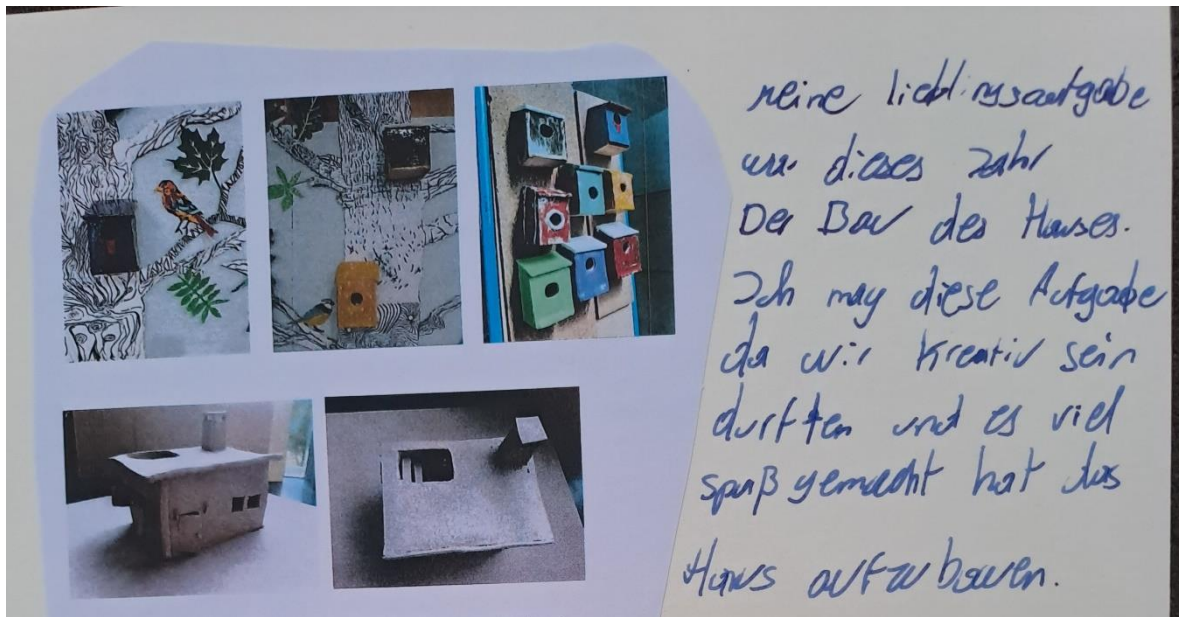 meine lieblingsaufgabe
war dieses Jahr
Der Bau des Hauses.
Ich mag diese Aufgabe
da wir kreativ sein
durften und es viel
spaß gemacht hat das
Haus aufzubauen.